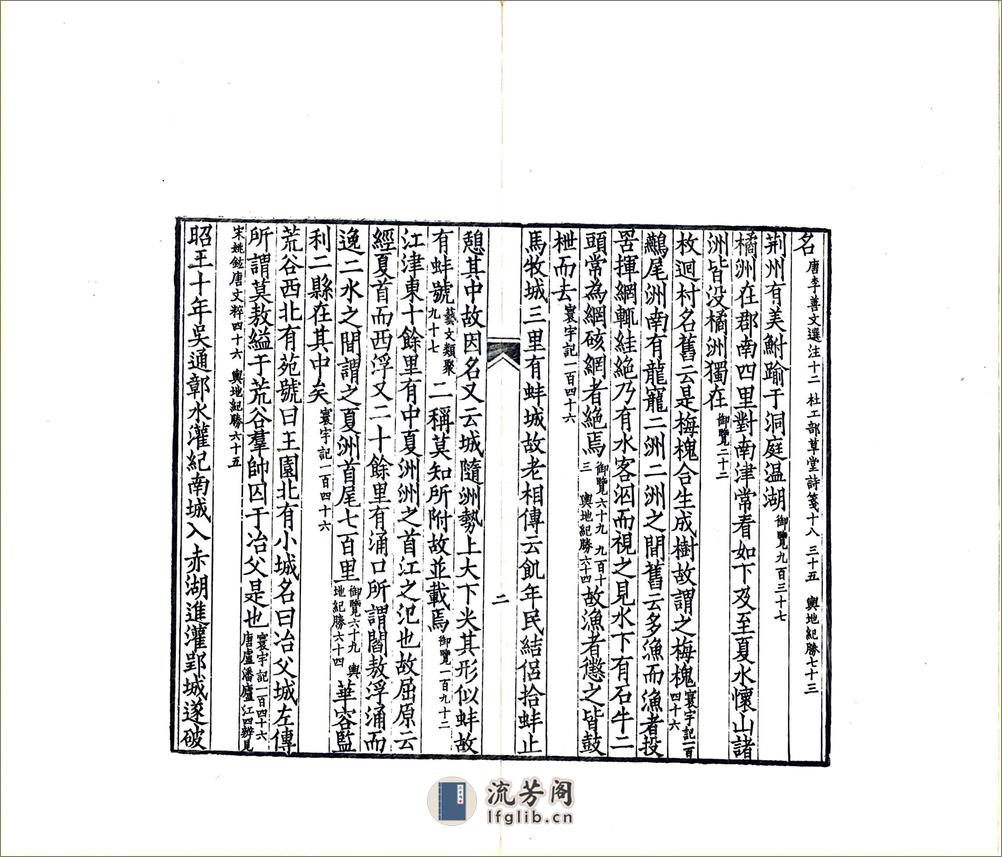 名唐李善文選注十二 杜工部草堂詩箋十八 三十五 輿地紀勝七十三
荆州有美鮒踰于洞庭温湖御覽九百三十七
橘洲在郡南四里對南津常看如下及至夏水懷山諸
洲皆没橘洲獨在御覽二十二
枚迴村名舊云是梅槐合生成樹故謂之梅槐寰宇記一百四十六
鸏尾洲南有龍寵二洲二洲之間舊云多漁而漁者投
罟揮網輒絓絶乃有水客泅而視之見水下有石牛二
頭常為網硋網者絶焉御覽六十九 九百十三 輿地紀勝六十四故漁者懲之皆鼓
枻而去寰宇記一百四十六
馬牧城三里有蚌城故老相傳云飢年民結侣拾蚌止
二
憩其中故因名又云城隨洲勢上大下尖其形似蚌故
有蚌號藝文類聚九十七二稱莫知所附故並載焉御覽一百九十二
江津東十餘里有中夏洲洲之首江之氾也故屈原云
經夏首而西浮又二十餘里有涌口所謂閻敖浮涌而
逸二水之間謂之夏洲首尾七百里御覽六十九 輿地紀勝六十四華容監
利二縣在其中矣寰宇記一百四十六
荒谷西北有苑號曰王園北有小城名曰冶父城左傳
所謂莫敖縊于荒谷羣帥囚于冶父是也寰宇記一百四十六 唐盧潘廬江四辨見
宋姚鉉唐文粹四十六 輿地紀勝六十五
昭王十年吳通鄣水灌紀南城入赤湖進灌郢城遂破
流芳阁
lfglib.cn